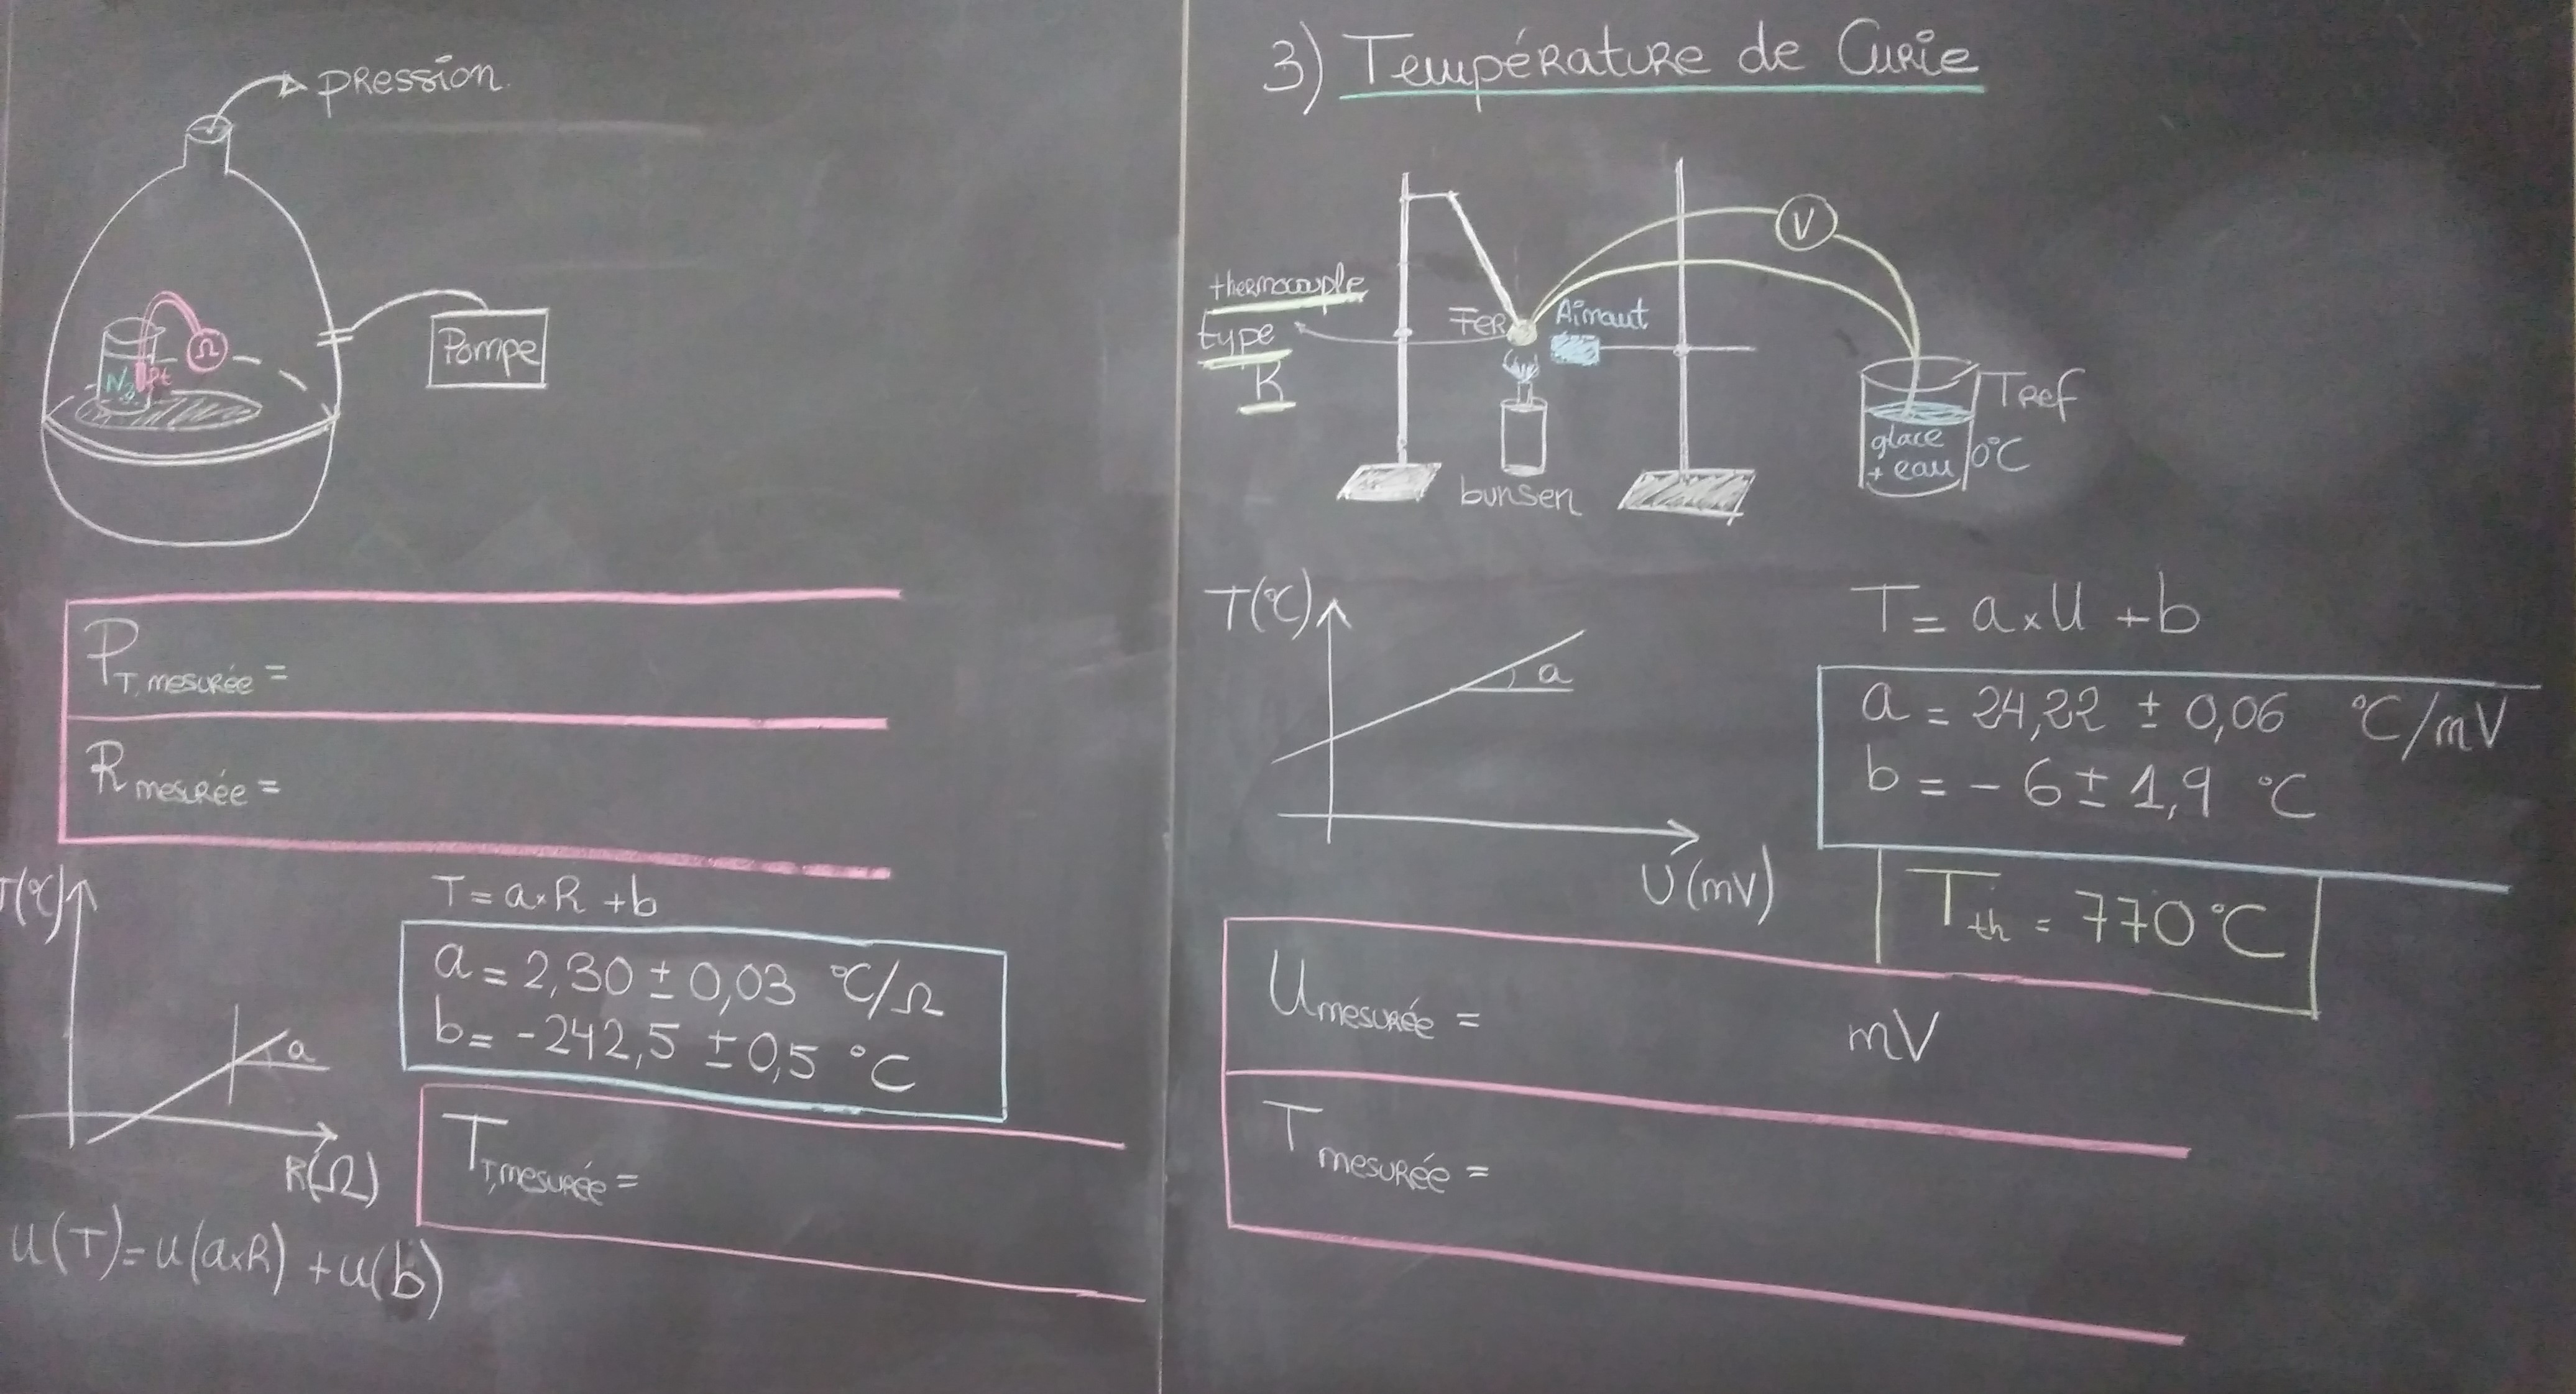 pression
Pompe
Ω
N₂ Pt
P T, mesurée =
R mesurée =
T(°C)
a
R(Ω)
T = a×R + b
a = 2,30 ± 0,03 °C/Ω
b = -242,5 ± 0,5 °C
T T, mesurée =
u(T) = u(a×R) + u(b)
3) Température de Curie
V
thermocouple
type
K
Fer
Aimant
bunsen
Tref
0°C
glace
+ eau
T(°C)
a
U(mV)
T = a×U + b
a = 24,22 ± 0,06 °C/mV
b = - 6 ± 1,9 °C
Tth = 770°C
U mesurée = mV
T mesurée =